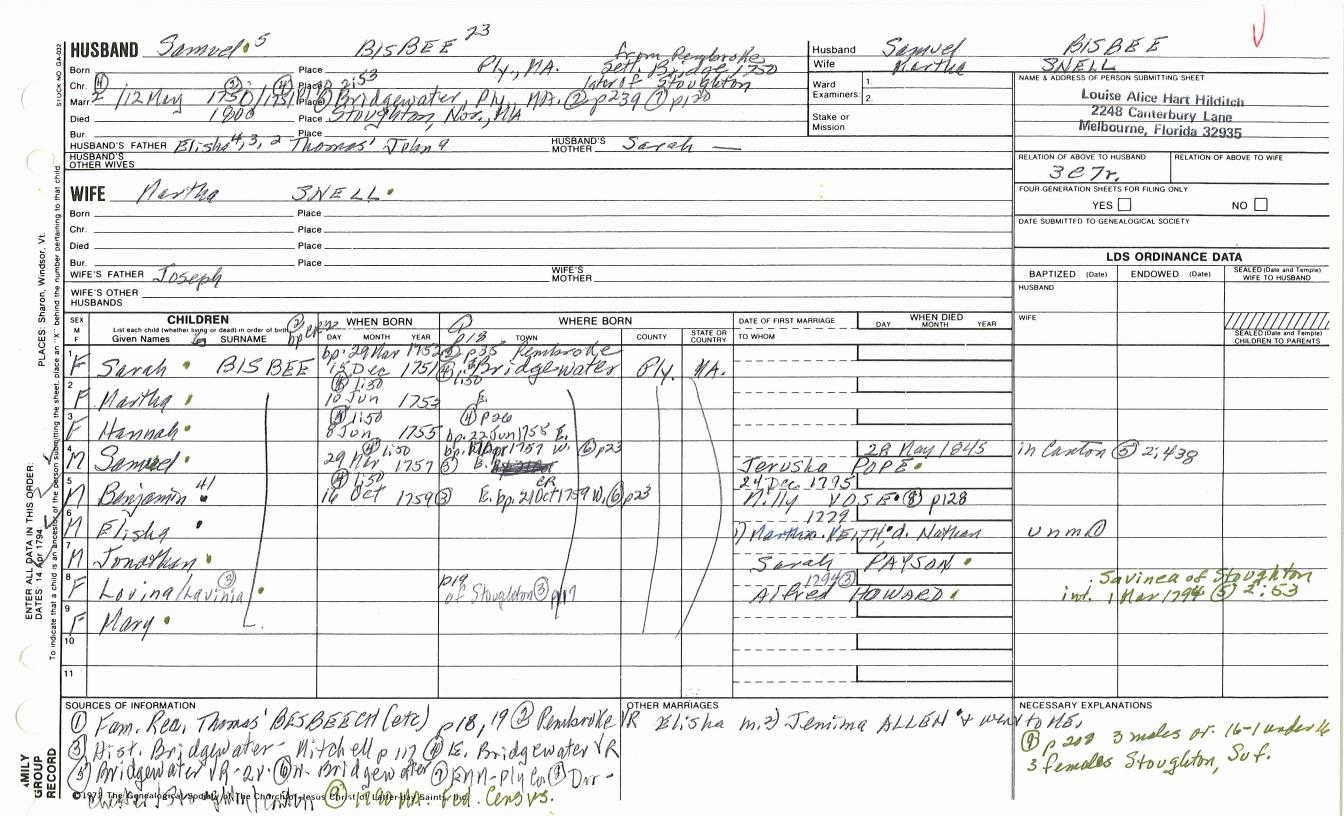 HUSBAND Samuel 5 BISBEE 23
Husband Samuel BISBEE
Wife Martha SNELL
Born Place Ply., MA. from Pembroke
Chr. Place 2:53 sett. Bridge. 1750
later of Stoughton
Marr. 12 May 1750/1751 Place Bridgewater, Ply., MA. ② p239 ① p120
Died 1800 Place Stoughton, Nor., MA
Bur. Place
Ward Examiners: 1. 2.
Stake or Mission
NAME & ADDRESS OF PERSON SUBMITTING SHEET
Louise Alice Hart Hilditch
2248 Canterbury Lane
Melbourne, Florida 32935
HUSBAND'S FATHER Elisha 4,3,2 Thomas' John 9 HUSBAND'S MOTHER Sarah —
HUSBAND'S OTHER WIVES
RELATION OF ABOVE TO HUSBAND RELATION OF ABOVE TO WIFE
3C7r.
FOUR-GENERATION SHEETS FOR FILING ONLY
YES NO
DATE SUBMITTED TO GENEALOGICAL SOCIETY
WIFE Martha SNELL
Born Place
Chr. Place
Died Place
Bur. Place
WIFE'S FATHER Joseph WIFE'S MOTHER
WIFE'S OTHER HUSBANDS
LDS ORDINANCE DATA
BAPTIZED (Date) ENDOWED (Date) SEALED (Date and Temple) WIFE TO HUSBAND
HUSBAND
WIFE
SEALED (Date and Temple) CHILDREN TO PARENTS
SEX M F
CHILDREN
List each child (whether living or dead) in order of birth
Given Names SURNAME
WHEN BORN DAY MONTH YEAR
WHERE BORN TOWN COUNTY STATE OR COUNTRY
DATE OF FIRST MARRIAGE TO WHOM
WHEN DIED DAY MONTH YEAR
p18
bp. 29 Mar 1752 ② p35 Pembroke
1 F Sarah BISBEE 15 Dec 1751 Bridgewater Ply. MA.
④ 1:50 1:50
2 F Martha 10 Jun 1753 E.
④ 1:50 ④ p26
3 F Hannah 8 Jun 1755 bp. 22 Jun 1755 E.
④ 1:50 1757 W. ⑥ p23 28 May 1845 in Canton ⑤ 2:438
4 M Samuel 29 Mar 1757 ③ E. Jerusha POPE
④ 1:50 CR 24 Dec 1795
5 M Benjamin 41 16 Oct 1759 ③ E. bp. 21 Oct 1759 W. ⑥ p23 Milly VOSE ⑧ p128
1779
6 M Elisha 1) Martha KEITH, d. Nathan unm ①
7 M Jonathan Sarah PAYSON
③ p19 1794 ③ Savinea of Stoughton
8 F Lovina/Lavinia of Stoughton ③ p117 Alfred HOWARD int. 1 Mar 1794 ⑤ 2:53
9 F Mary
10
11
SOURCES OF INFORMATION
① Fam. Rec. Thomas' BESBEECH (etc) p18, 19 ② Pembroke VR
③ Hist. Bridgewater - Mitchell p 117 ④ E. Bridgewater VR
⑤ Bridgewater VR-2v. ⑥ W. Bridgewater ⑦ Ply Co ⑧ Dor-
⑨ 1790 MA. Fed. Census.
OTHER MARRIAGES
Elisha m. 2) Jemima ALLEN & went to ME.
NECESSARY EXPLANATIONS
⑨ p 208 3 males or. 16-1 under 16
3 females Stoughton, Suf.
©1972 The Genealogical Society of The Church of Jesus Christ of Latter-day Saints, Inc.
FAMILY GROUP RECORD
STOCK NO GA-032
ENTER ALL DATA IN THIS ORDER:
DATES: 14 Apr 1794
PLACES: Sharon, Windsor, Vt.
To indicate that a child is an ancestor of the person submitting the sheet, place an "X" behind the number pertaining to that child